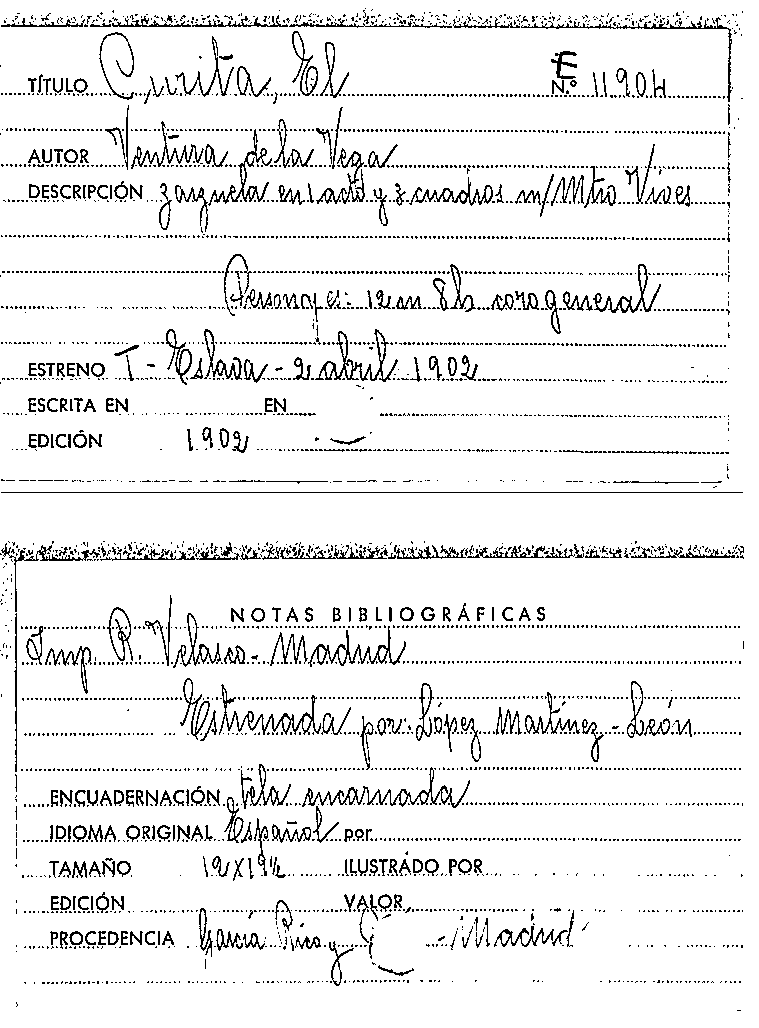 TÍTULO Curita, El E N.º 11904
AUTOR Ventura de la Vega
DESCRIPCIÓN zarzuela en 1 acto y 3 cuadros m/ Mtro Vives
Personajes: 12 m 8 h coro general
ESTRENO T - Eslava - 2 abril 1902
ESCRITA EN EN
EDICIÓN 1902
NOTAS BIBLIOGRÁFICAS
Imp. R. Velasco - Madrid
Estrenada por: López Martínez - León
ENCUADERNACIÓN tela encarnada
IDIOMA ORIGINAL Español por
TAMAÑO 12 X 19½ ILUSTRADO POR
EDICIÓN VALOR
PROCEDENCIA García Rico y Cª - Madrid